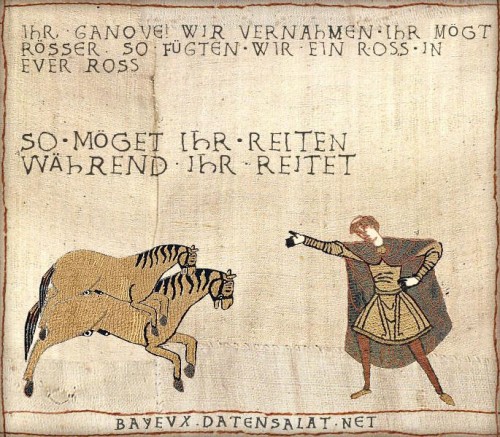 IHR · GANOVE! WIR VERNAHMEN · IHR MÖGT
RÖSSER · SO FÜGTEN · WIR EIN ROSS · IN
EVER ROSS
SO · MÖGET IHR · REITEN
WÄHREND · IHR · REITET
BAYEVX · DATENSALAT · NET